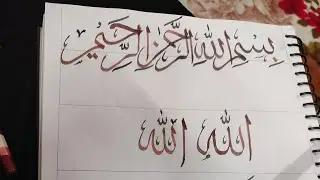 بِسْمِ اللهِ الرَّحْمٰنِ الرَّحِيْمِ
اللهِ الله